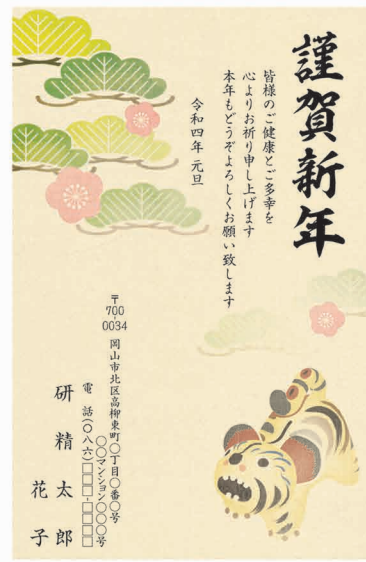 謹賀新年
皆様のご健康とご多幸を
心よりお祈り申し上げます
本年もどうぞよろしくお願い致します
令和四年 元旦
〒700-0034
岡山市北区高柳東町〇丁目〇番〇号
〇〇マンション〇〇〇号
電 話(〇八六)□□□-□□□□
研 精 太 郎
花 子